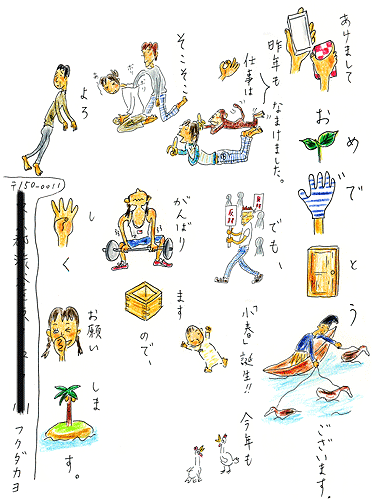 あけまして
おめでとう
ございます。
昨年も なまけました。
仕事は
でも、
「小春」誕生!!
今年も
そこそこ
がんばり
ますので、
よろ
しく
お願い
します。
〒150-0011
フクダカヨ